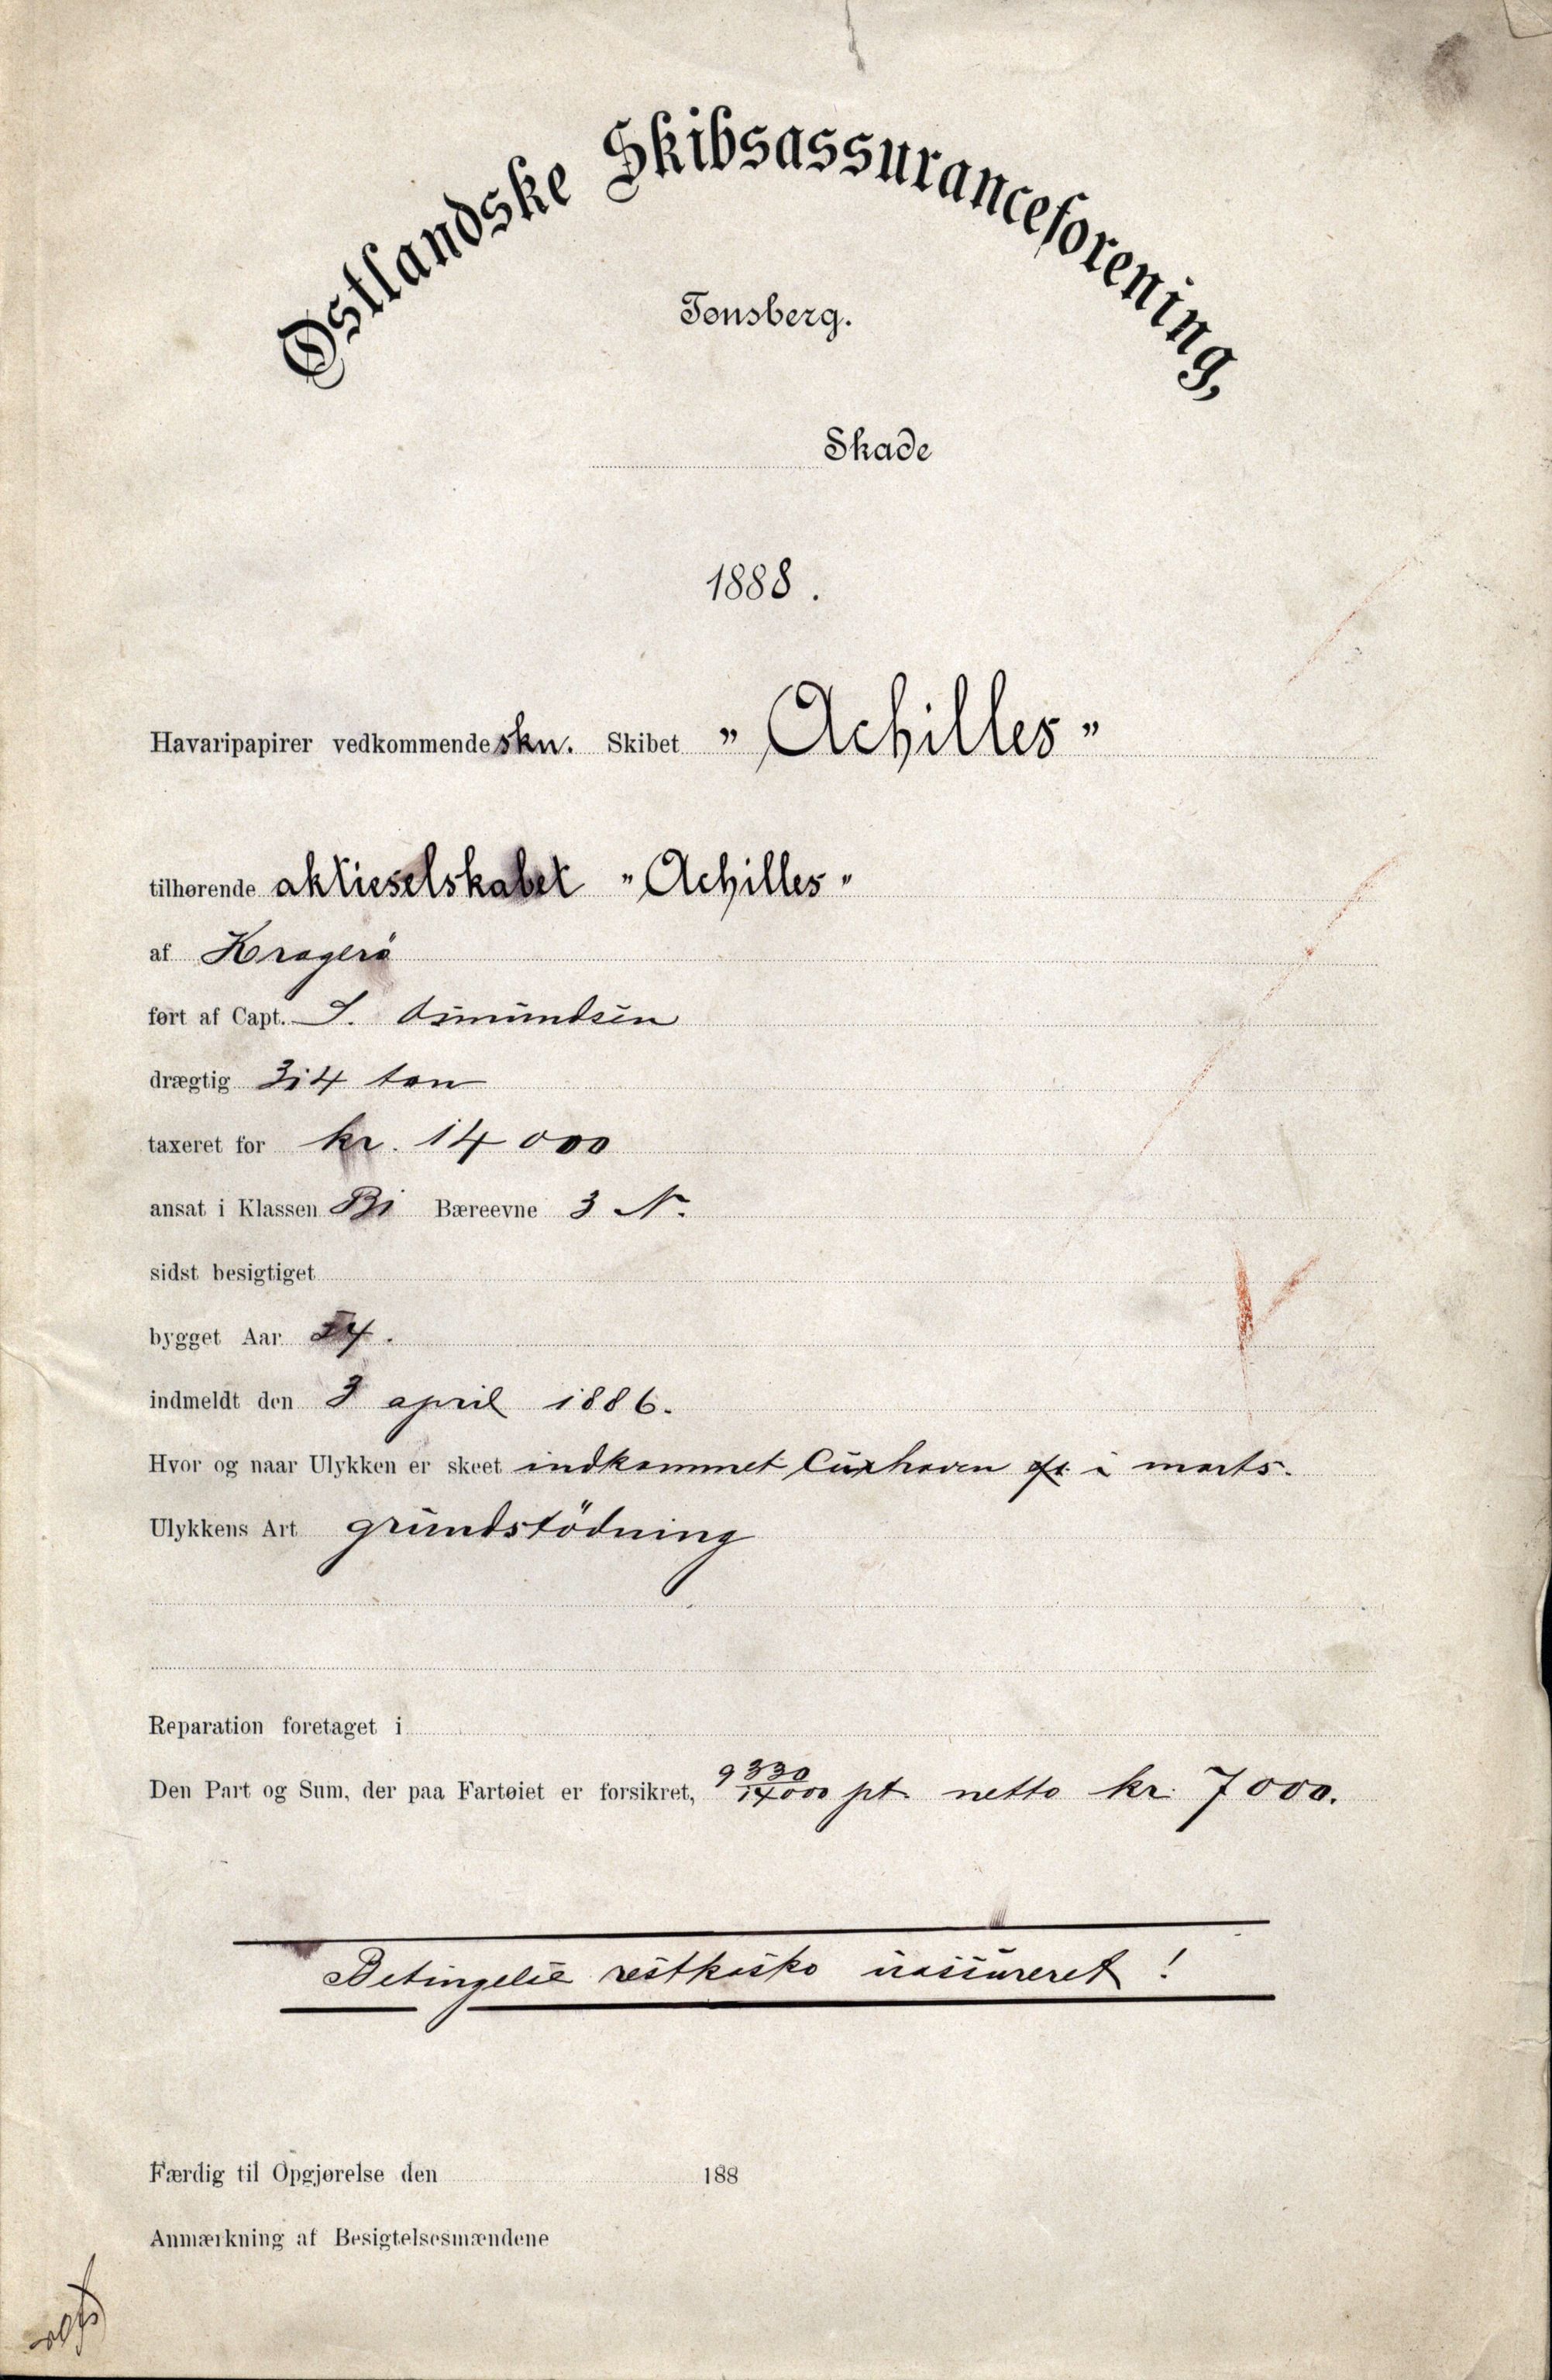 Østlandske Skibsassuranceforening,
Tønsberg.
Skade
1888.
Havaripapirer vedkommende skn. Skibet „Achilles”
tilhørende aktieselskabet „Achilles”
af Kragerö
ført af Capt. S. Asmundsen
drægtig 314 ton
taxeret for kr. 14000
ansat i Klassen B1 Bæreevne 3 N.
sidst besigtiget
bygget Aar 54.
indmeldt den 3 april 1886.
Hvor og naar Ulykken er skeet indkommet Cuxhaven i marts.
Ulykkens Art grundstödning
Reparation foretaget i
Den Part og Sum, der paa Fartøiet er forsikret, 9330/14000 pt. netto kr. 7000.
Betingelse restkasko uassureret!
Færdig til Opgjørelse den 188
Anmærkning af Besigtelsesmændene